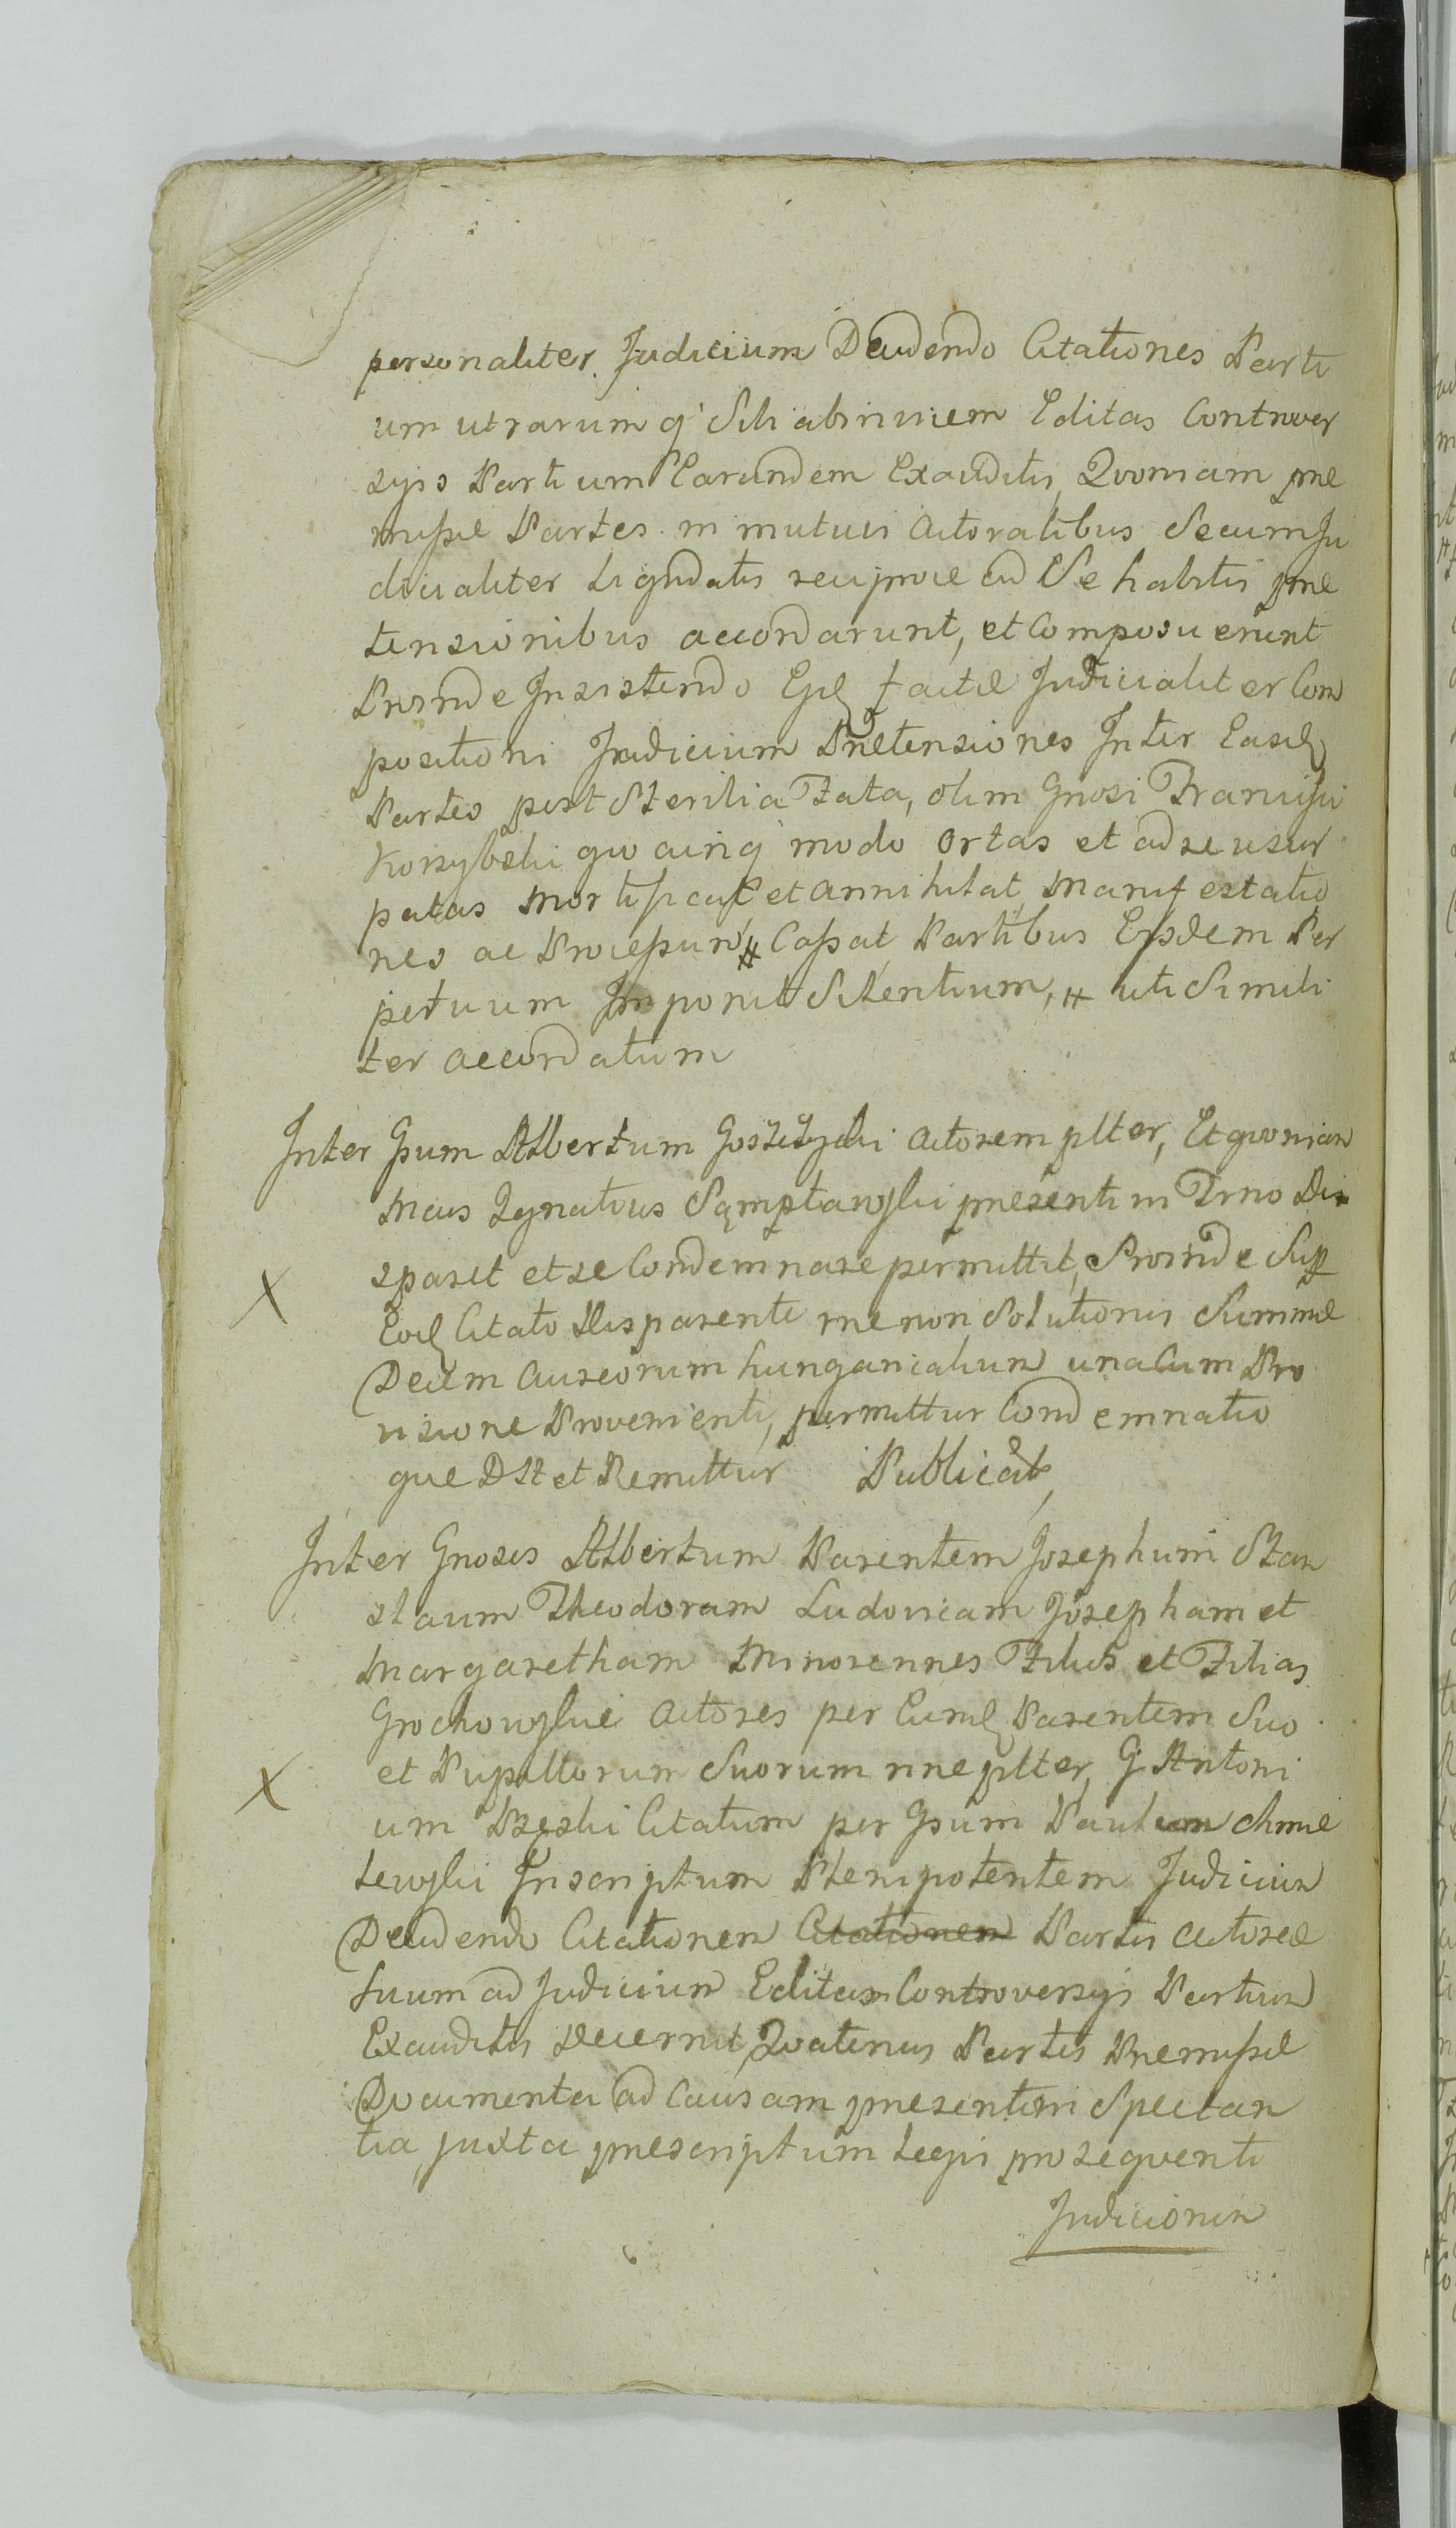 personaliter. Judicium Deudendo Citationes Parti
um utrarumq' Sibi abinvicem Editas Controver
syis Partium Earundem Exauditis, Qvoniam prae
missae Partes in mutuis Actoratibus Secum Ju
dicialiter Liqvidatis reciproce ad Se habitis prae
tensionibus accordarunt, et Composuerunt
Proinde Insistendo Ejd factae Judicialiter Com
positioni Judicium Praetensiones Inter Easd
Partes post Sterilia Fata, olim Gnosi Francisci
Korzybski qvocunq' modo ortas et ad se usur
patas Mortificat et annihilat, Manifestatio
nes ac Processum # Cassat Partibus Eisdem Per
petuum Imponit Silentium, # uti Simili
ter accordatum
Inter Gsum Albertum Actorem plter, Et qvoniam
Mcus Ignatius praesenti in Trno Di
sparet et se Condemnare permittit, Proinde Sup
Eod Citato Disparente rne non Solutionis Summae
Decem Aureorum hungaricalium una Cum Pro
visione Provenienti, permittur Condemnatio
que Dst et Remittur Publicat,
Inter Gnosos Albertum Parentem Josephum Stan
slaum Theodoram Ludovicam Josepham et
Margaretham Minorennes Filios et Filias
Grochowskie Actores per Eumd Parentem Suo
et Pupillorum Suorum nne plter, G Antoni
um Citatum per Gsum Paulum Chmie
lewski Inscriptum Plenipotentem Judicium
Deudendo Citationem Citationem Partis Actoreae
Suum ad Judicium Editam Controversyis Partium
Exauditis decernit, Qvatenus Partes Praemissae
Documenta ad Causam praesentem Spectan
tia, juxta praescriptum Legis proseqventi
Judiciorum